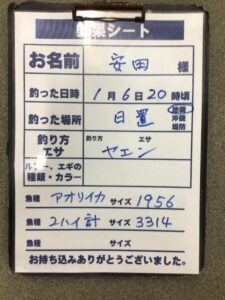 釣果シート
お名前 安田 様
釣った日時 1月6日20時頃
釣った場所 日置 地磯 沖磯 堤防
釣り方 エサ 釣り方 エサ ヤエン
ルアー、エギの種類・カラー
魚種 アオリイカ サイズ 1956
魚種 2ハイ計 サイズ 3314
魚種 サイズ
お持ち込みありがとうございました。